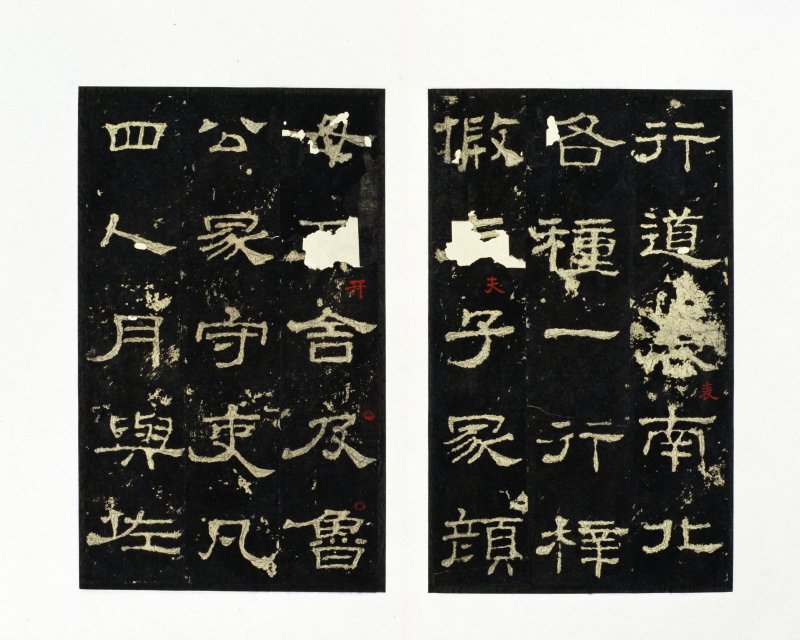 行道南北
表
各種一行梓
假子冢顏
夫
母舍及魯
开
公冢守吏凡
四人月與佐